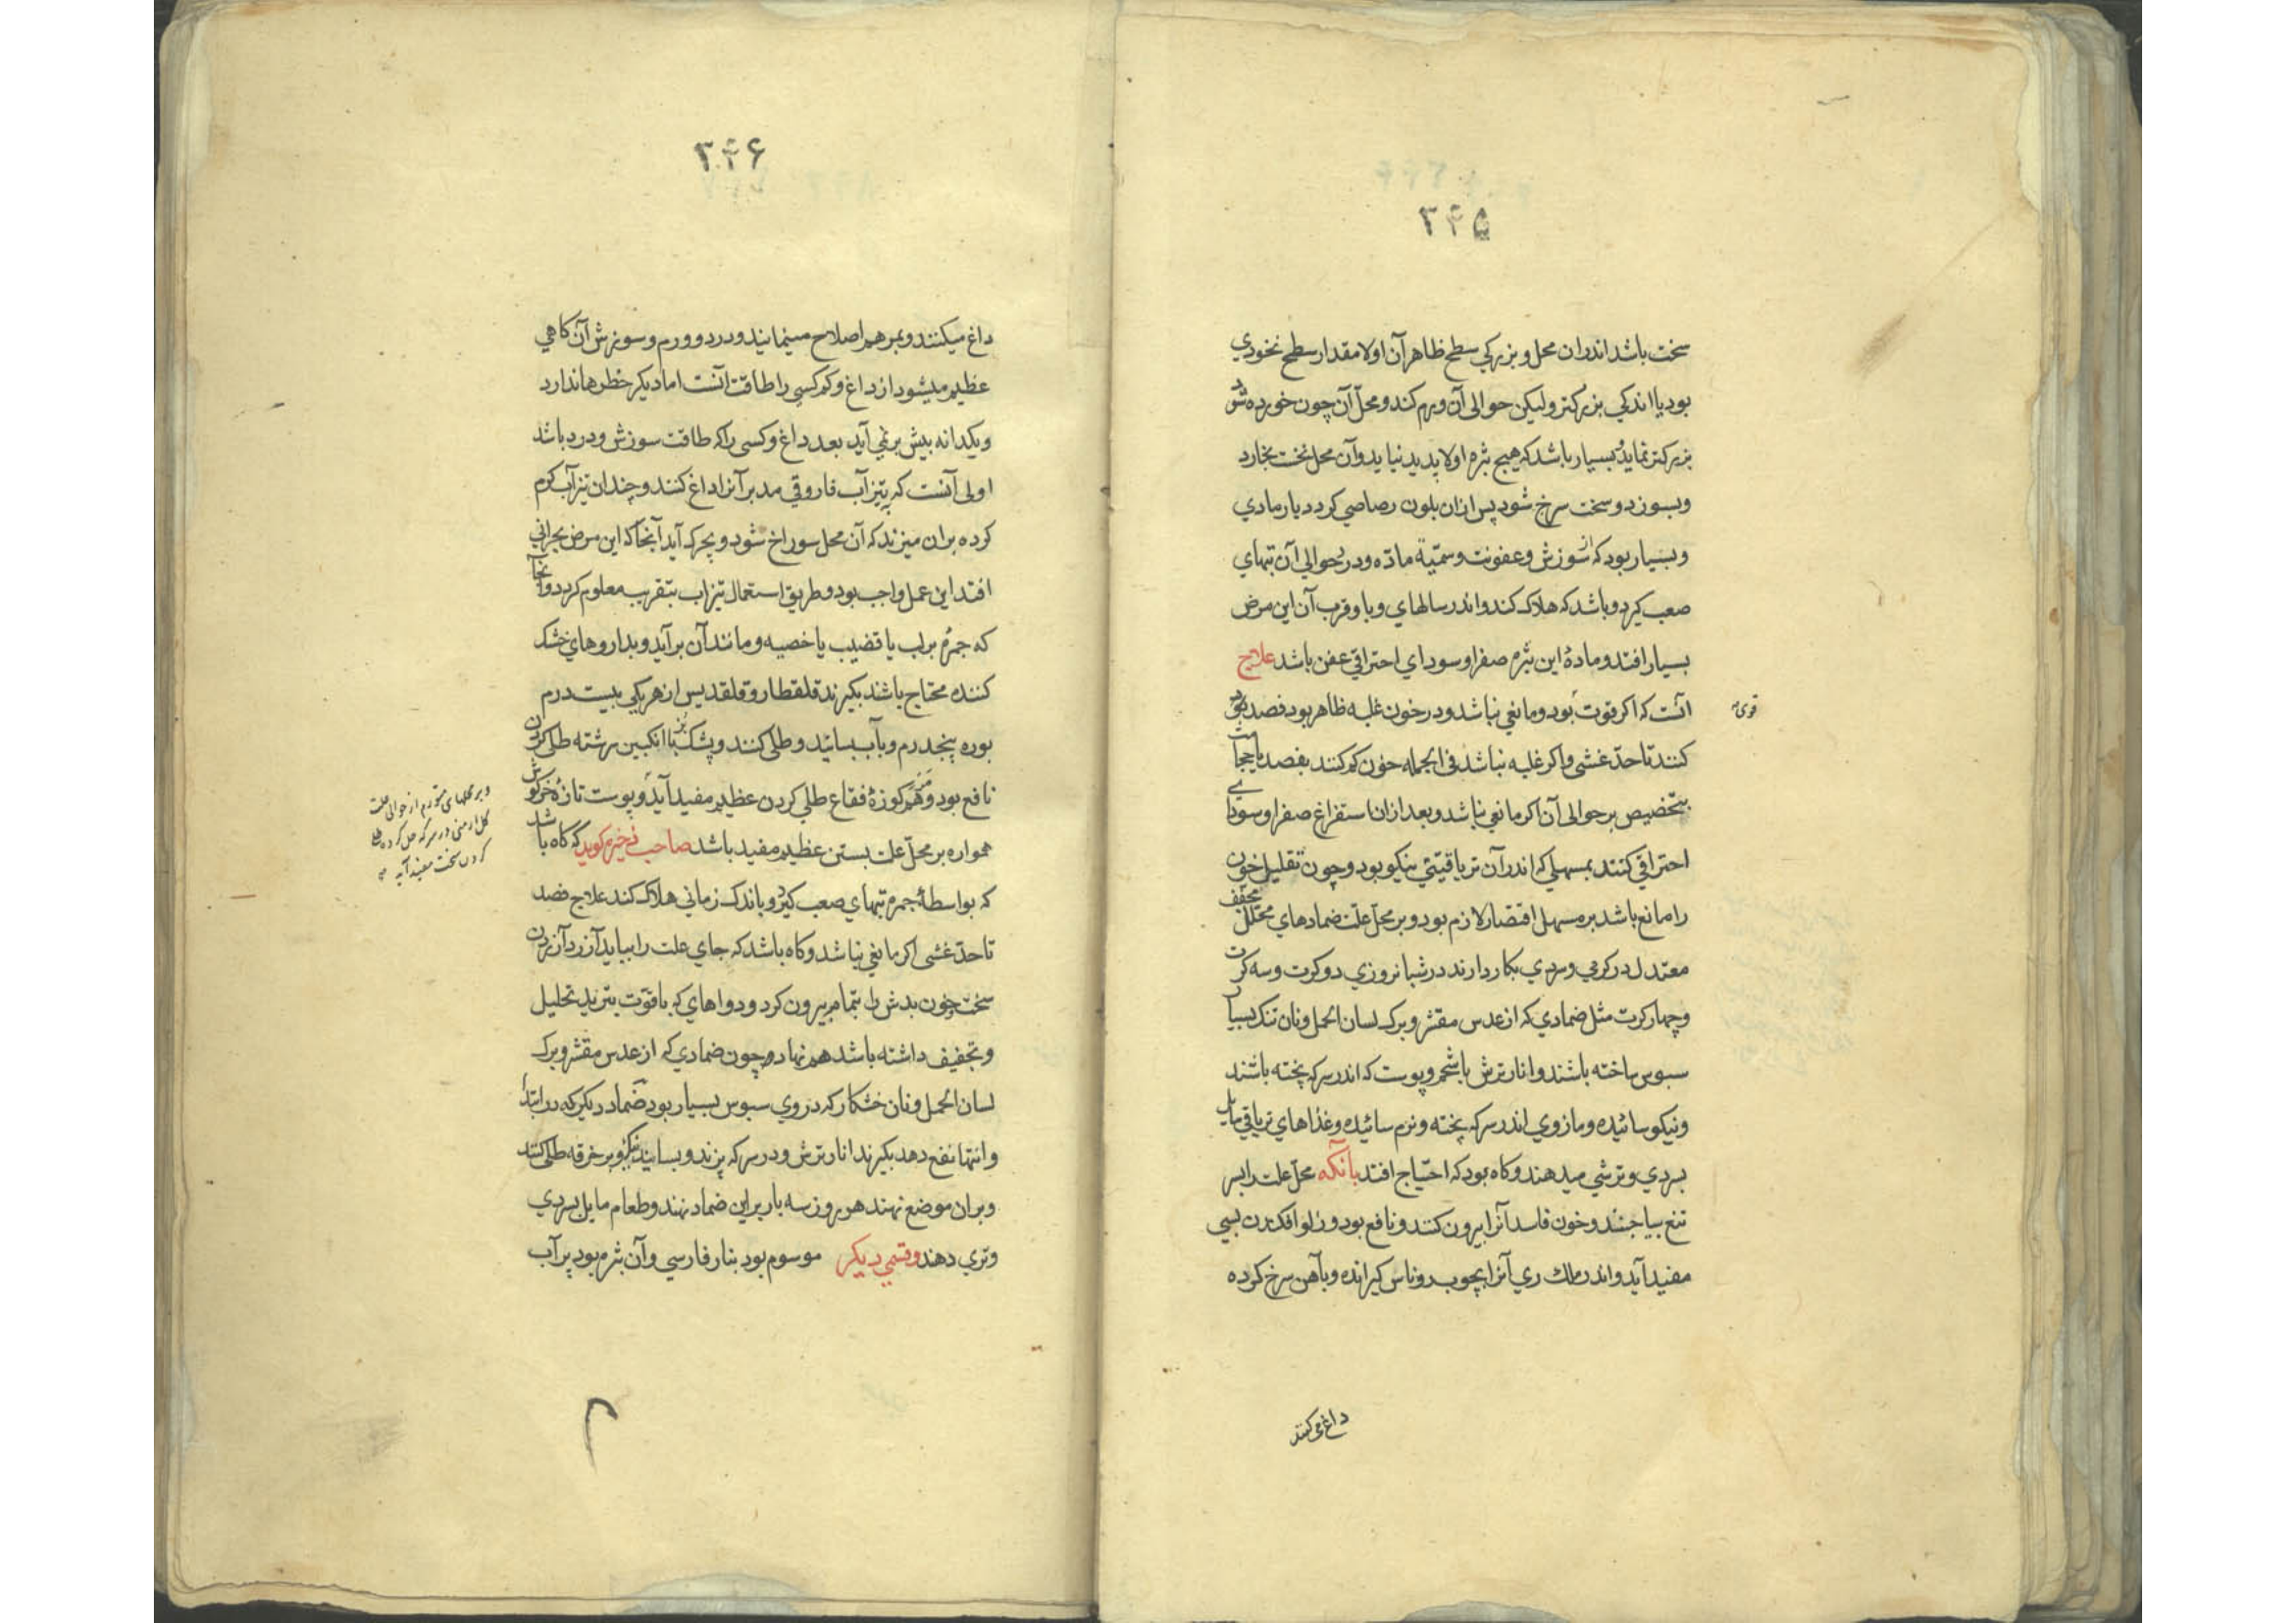 ۳۴۵
سخت باشد اندران محل و بزرکي سطح ظاهر آن اولا مقدار سطح نخودي
بود يا اندکي بزرکتر وليکن حوالي آن ورم کند و محل آن چون خورده شود
بزرکتر نمايد و بسيار باشد که هيچ بثره اولا پديد نيايد و آن محل نخست بخارد
و بسوزد و سخت سرخ شود پس ازان بلون رصاصي کردد يا رمادي
و بسيار بود که از سوزش و عفونت و سمّية مادّه و درد حوالي آن تبهاي
صعب کيرد و باشد که هلاک کند و اندر سالهاي وبا و قرب آن اين مرض
بسيار افتد و مادهٔ اين بثره صفرا و سوداي احتراقي عفن باشد علاج
آنست که اکر قوت بود و مانعي نباشد و در خون غلبه ظاهر بود فصد بود
قوي
کنند تا حدّ غشي و اکر غلبه نباشد في الجمله خون کم کنند بفصد يا حجامت
بتخصيص بر حوالي آن اکر مانعي نباشد و بعد ازان استفراغ صفرا و سوداي
احتراقي کنند بمسهلي که اندر آن ترياقيّتي نيکو بود و چون تقليل خون
را مانع باشد بر مسهل اقتصار لازم بود و بر محلّ علت ضمادهاي محلل مجفف
معتدل در کرمي و سردي بکار دارند در شبانروزي دو کرت و سه کرت
و چهار کرت مثل ضمادي که از عدس مقشر و برک لسان الحمل و نان تنک بسيار
سبوس ساخته باشند و انار ترش با شحم و پوست که اندر سرکه پخته باشند
و نيکو سائيده و مازوي اندر سرکه پخته و نرم سائيده و غذاهاي ترياقي مايل
بسردي و ترشي ميدهند و کاه بود که احتياج افتد بآنکه محلّ علت را بسر
تيغ بياجنند و خون فاسد آنرا بيرون کنند و نافع بود و زلو افکندن بسي
مفيد آيد و اندر ملک ري آنرا بچوب روناس کيرانده و بآهن سرخ کرده
داغ مي کنند
۳۴۶
داغ ميکنند و بمرهم اصلاح مينمايند و درد و ورم و سوزش آن کاهي
عظيم ميشود از داغ و کم کسي را طاقت آنست اما ديکر خطرها ندارد
و يکدانه بيش بر نمي آيد بعد داغ و کسي را که طاقت سوزش و درد باشد
اولي آنست که بتيزآب فاروقي مدبر آنرا داغ کنند و چندان تيزآب کرم
کرده بران ميزند که آن محل سوراخ شود و بچرک آيد آنجا که اين مرض بحراني
افتد اين عمل واجب بود و طريق استعمال تيزاب بتقريب معلوم کردد و آنجا
که جمره بر لب يا قضيب يا خصيه و مانند آن برآيد و بداروهاي خشک
کننده محتاج باشند بکيرند قلقطار و قلقديس از هر يکي بيست درم
بوره پنجدرم و بآب بسايند و طلي کنند و پشک بز با انکبين سرشته طلي کردن
نافع بود و هم کوزهٔ فقاع طلي کردن عظيم مفيد آيد و پوست تازهٔ خرکوش
و بر محلهاي متورم از حوالي علت
کل ارمني در سرکه حل کرده طلي
کردن سخت مفيد آيد
همواره بر محلّ علت بستن عظيم مفيد باشد صاحب ذخيره کويد که کاه باشد
که بواسطهٔ جمره تبهاي صعب کيرد و باندک زماني هلاک کند علاج فصد
تا حدّ غشي اکر مانعي نباشد و کاه باشد که جاي علت را ببايد آزردن آزردن
سخت و خون بدش را بتمام بيرون کرد و دواهاي که با قوّت تبريد تحليل
و تجفيف داشته باشد هم نهاد و چون ضمادي که از عدس مقشر و برک
لسان الحمل و نان خشکار که در وي سبوس بسيار بود ضماد ديکر که در ابتدا
و انتها نفع دهد بکيرند انار ترش و در سرکه پزند و بسايند نيکو و بر خرقه طلي کنند
و بران موضع نهند هر روز سه بار براين ضماد نهند و طعام مايل بسردي
و تري دهند و قسمي ديکر موسوم بود بنار فارسي و آن بثره بود پر آب